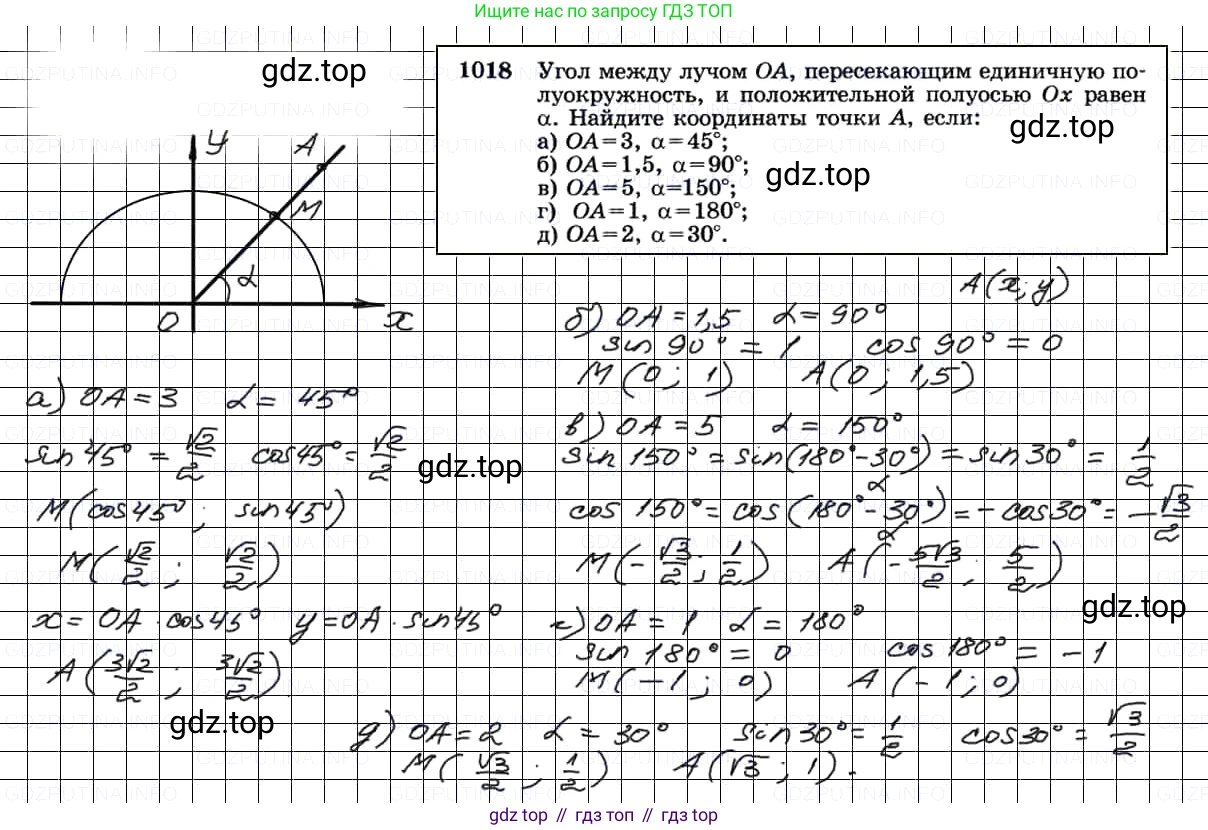 Ищите нас по запросу ГДЗ ТОП
GDZPUTINA.INFO
gdz.top
1018 Угол между лучом OA, пересекающим единичную по-
луокружность, и положительной полуосью Ox равен
α. Найдите координаты точки A, если:
а) OA=3, α=45°;
б) OA=1,5, α=90°;
в) OA=5, α=150°;
г) OA=1, α=180°;
д) OA=2, α=30°.
gdz.top
gdz.top
y
A
M
α
O
x
A(x; y)
а) OA = 3 α = 45°
sin 45° = √2/2 cos 45° = √2/2
gdz.top
M(cos 45°; sin 45°)
M(√2/2; √2/2)
x = OA · cos 45° y = OA · sin 45°
A(3√2/2; 3√2/2)
gdz.top
б) OA = 1,5 α = 90°
sin 90° = 1 cos 90° = 0
M(0; 1) A(0; 1,5)
в) OA = 5 α = 150°
sin 150° = sin(180° - 30°) = sin 30° = 1/2
α
cos 150° = cos(180° - 30°) = - cos 30° = - √3/2
α
M(- √3/2; 1/2) A(- 5√3/2; 5/2)
gdz.top
г) OA = 1 α = 180°
sin 180° = 0 cos 180° = -1
M(-1; 0) A(-1; 0)
д) OA = 2 α = 30° sin 30° = 1/2 cos 30° = √3/2
M(√3/2; 1/2) A(√3; 1).
gdz.top // гдз топ // gdz.top